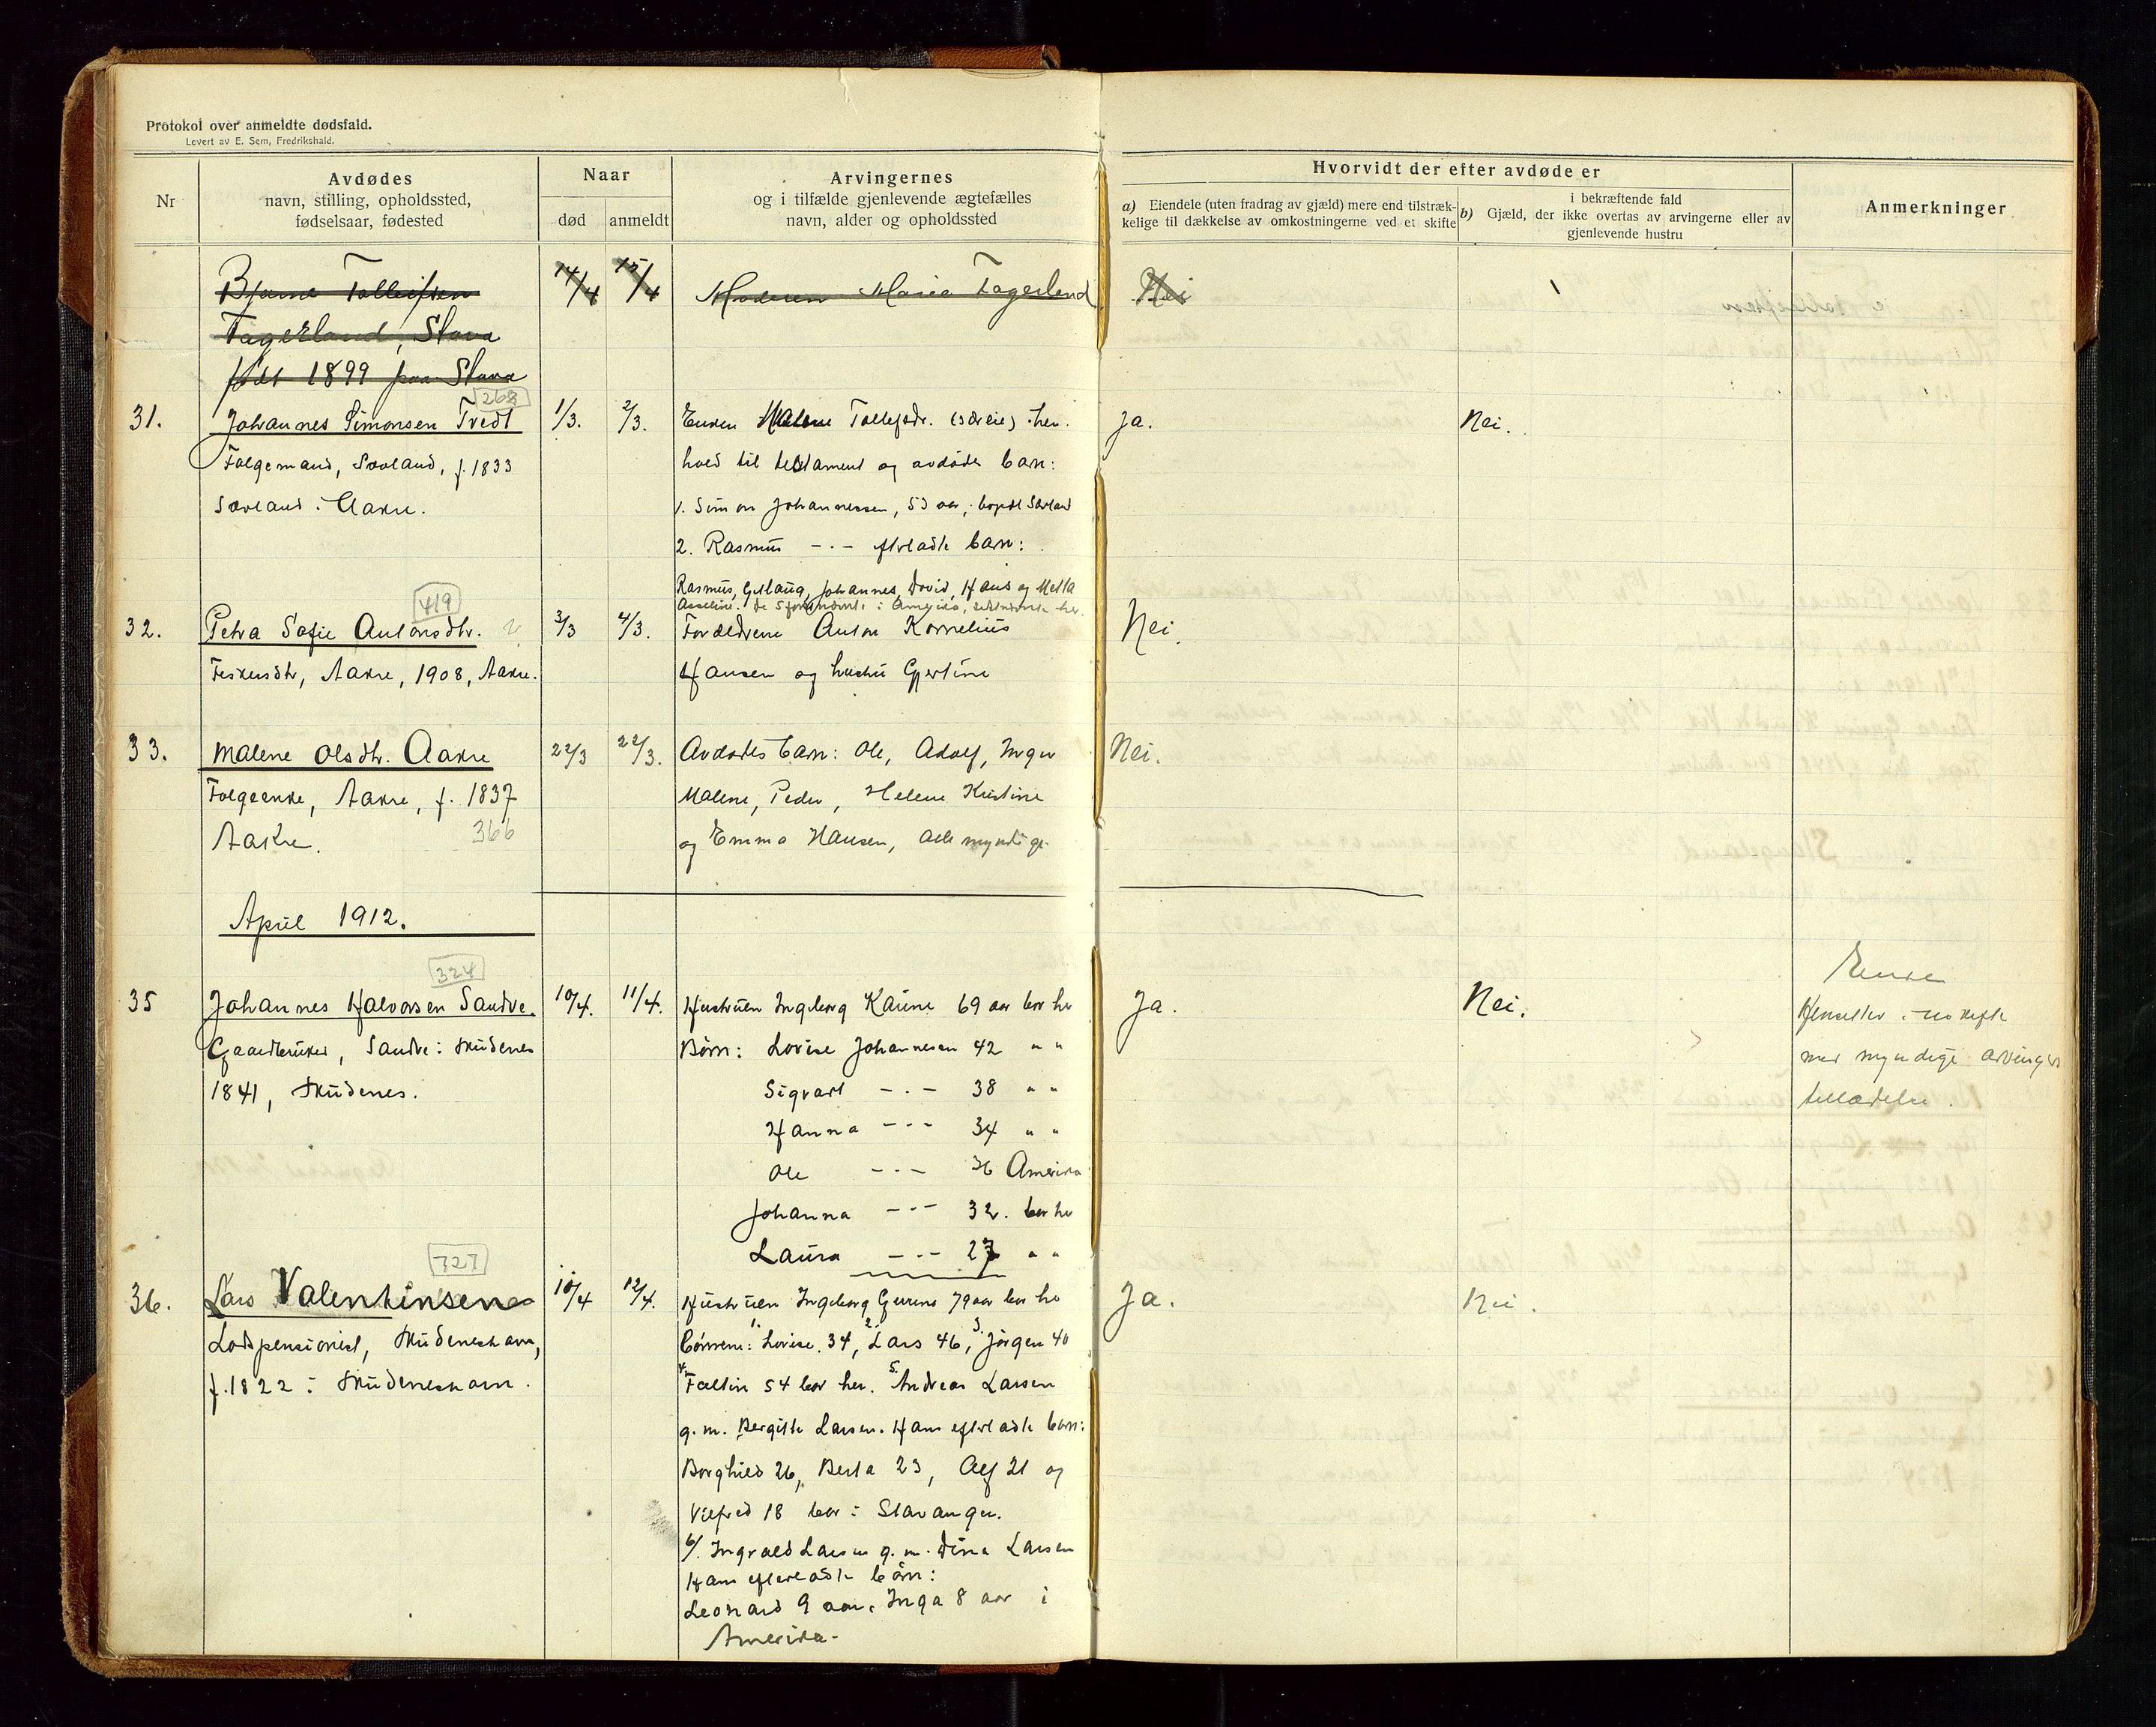 Protokol over anmeldte dødsfald.
Levert av E. Sem, Fredrikshald.
Nr
Avdødes
navn, stilling, opholdssted,
fødselsaar, fødested
Naar
død
anmeldt
Arvingernes
og i tilfælde gjenlevende ægtefælles
navn, alder og opholdssted
Hvorvidt der efter avdøde er
a) Eiendele (uten fradrag av gjæld) mere end tilstræk-
kelige til dækkelse av omkostningerne ved et skifte
i bekræftende fald
b) Gjæld, der ikke overtas av arvingerne eller av
gjenlevende hustru
Anmerkninger
Bjarne Tolleifsen
Fagerland, Stava
født 1899 paa Stava
14/4 15/4
Moderen Maria Fagerland
Nei
268
31. Johannes Simonsen Tvedt
Folgemand, Sævland, f. 1833
Sævland i Aakre.
1/3. 2/3.
Enken Malene Tollefsdr. (særeie) i hen-
hold til testament og avdødes barn:
1. Simon Johannessen, 53 aar, bopæl Sævland
2. Rasmus -"- efterladte barn:
Rasmus, Gitlaug, Johannes, David, Hans og Metta
Asseline. De 5 førstnævnte i Amerika, sidstnævnte her.
Ja. Nei.
419
32. Petra Sofie Antonsdtr.
Fiskersdtr, Aakre, 1908, Aakre.
3/3 4/3.
Forældrene Anton Kornelius
Hansen og hustru Gjertine
Nei.
33. Malene Olsdtr. Aakre
Folgeenke, Aakre, f. 1837
Aakre. 366
22/3 22/3.
Avdødes barn: Ole, Adolf, Inger
Malene, Peder, Helene Kristine
og Emma Hansen, alle myndige.
Nei.
April 1912.
324
35 Johannes Halvorsen Sandve.
Gaardbruker, Sandve i Skudenes
1841, Skudenes.
10/4. 11/4.
Hustruen Ingeborg Karine 69 aar bor her
Børn: Lovise Johannesen 42 " "
Sigvart -"- 38 " "
Hanna -"- 34 " "
Ole -"- 36 Amerika
Johanna -"- 32. bor her
Laura -"- 27 " "
Ja. Nei.
Enken
Hensitter i uskifte
med myndige arvingers
tilladelse.
327
36. Lars Valentinsen
Lodspensionist, Skudeneshavn,
f. 1822 i Skudeneshavn.
10/4 12/4.
Hustruen Ingeborg Gurine 79 aar bor her
Børnene: 1. Lovise. 34, 2. Lars 46, 3. Jørgen 40
4. Faltin 54 bor her. 5. Andreas Larsen
g. m. Bergitte Larsen. Hans efterladte barn:
Borghild 26, Berta 23, Alf 21 og
Vilfred 18 bor i Stavanger.
6/. Ingvald Larsen g. m. Dina Larsen
Hans efterladte børn:
Leonard 9 aar. Inga 8 aar i
Amerika.
Ja. Nei.